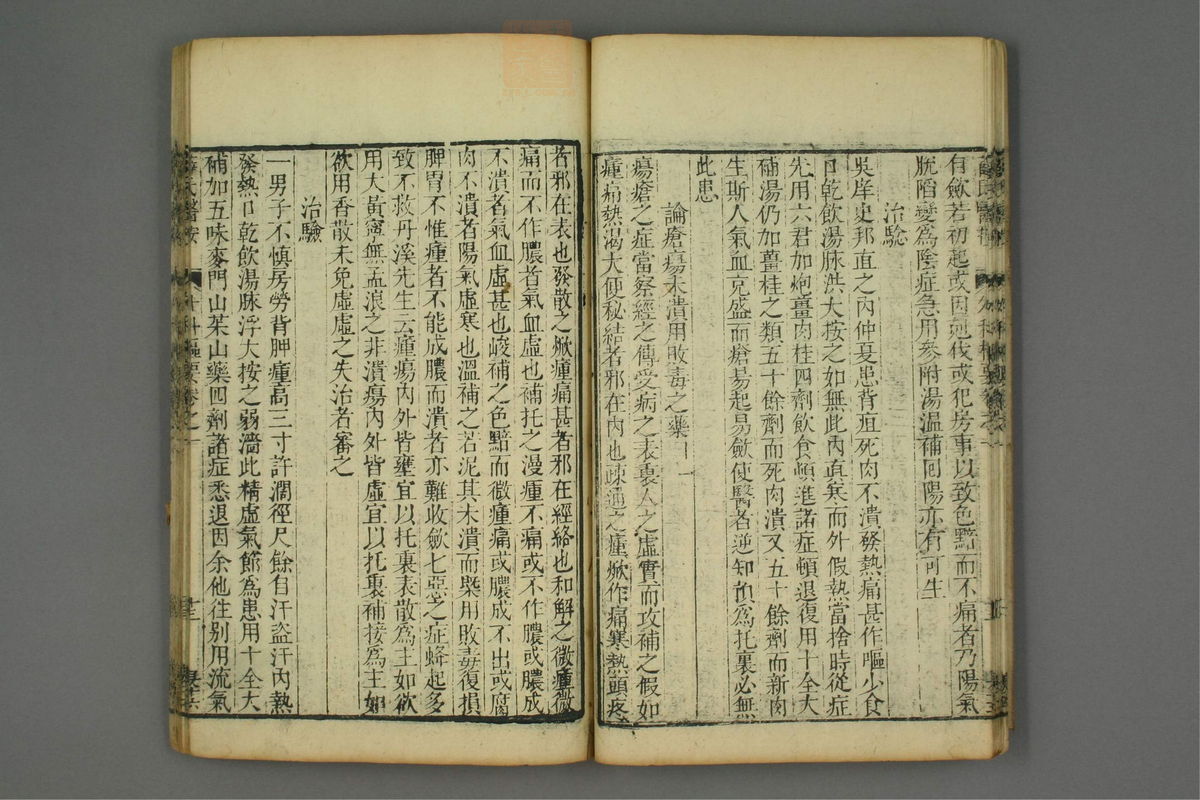 有歛若初起或因尅伐或犯房事以致色黯而不痛者乃陽氣
脫陷變爲陰症急用參附湯溫補囘陽亦有可生
治騐
吳庠史邦直之內仲夏患背疽死肉不潰發熱痛甚作嘔少食
口乾飲湯脉洪大按之如無此內眞寒而外假熱當捨時從症
先用六君加炮薑肉桂四劑飲食頓進諸症頓退復用十全大
補湯仍加薑桂之類五十餘劑而死肉潰又五十餘劑而新肉
生斯人氣血充盛而瘡瘍起易歛使醫者逆知預爲托裏必無
此患
論瘡瘍未潰用敗毒之藥
瘍瘡之症當察經之傳受病之表裏人之虛實而攻補之假如
腫痛熱渴大便秘結者邪在內也疎通之腫焮作痛寒熱頭疼
者邪在表也發散之焮腫痛甚者邪在經絡也和解之微腫微
痛而不作膿者氣血虛也補托之漫腫不痛或不作膿或膿成
不潰者氣血虛甚也峻補之色黯而微腫痛或膿成不出或腐
肉不潰者陽氣虛寒也溫補之若泥其未潰而槩用敗毒復損
脾胃不惟腫者不能成膿而潰者亦難收歛七惡之症蜂起多
致不救丹溪先生云腫瘍內外皆壅宜以托裏表散爲主如欲
用大黃寧無孟浪之非潰瘍內外皆虛宜以托裏補接爲主如
欲用香散未免虛虛之失治者審之
治驗
一男子不慎房勞背胛腫高三寸許濶徑尺餘自汗盜汗內熱
發熱口乾飲湯脉浮大按之弱濇此精虛氣節爲患用十全大
補加五味麥門山茱山藥四劑諸症悉退因余他往別用流氣
薛氏醫按
外科樞要卷之一